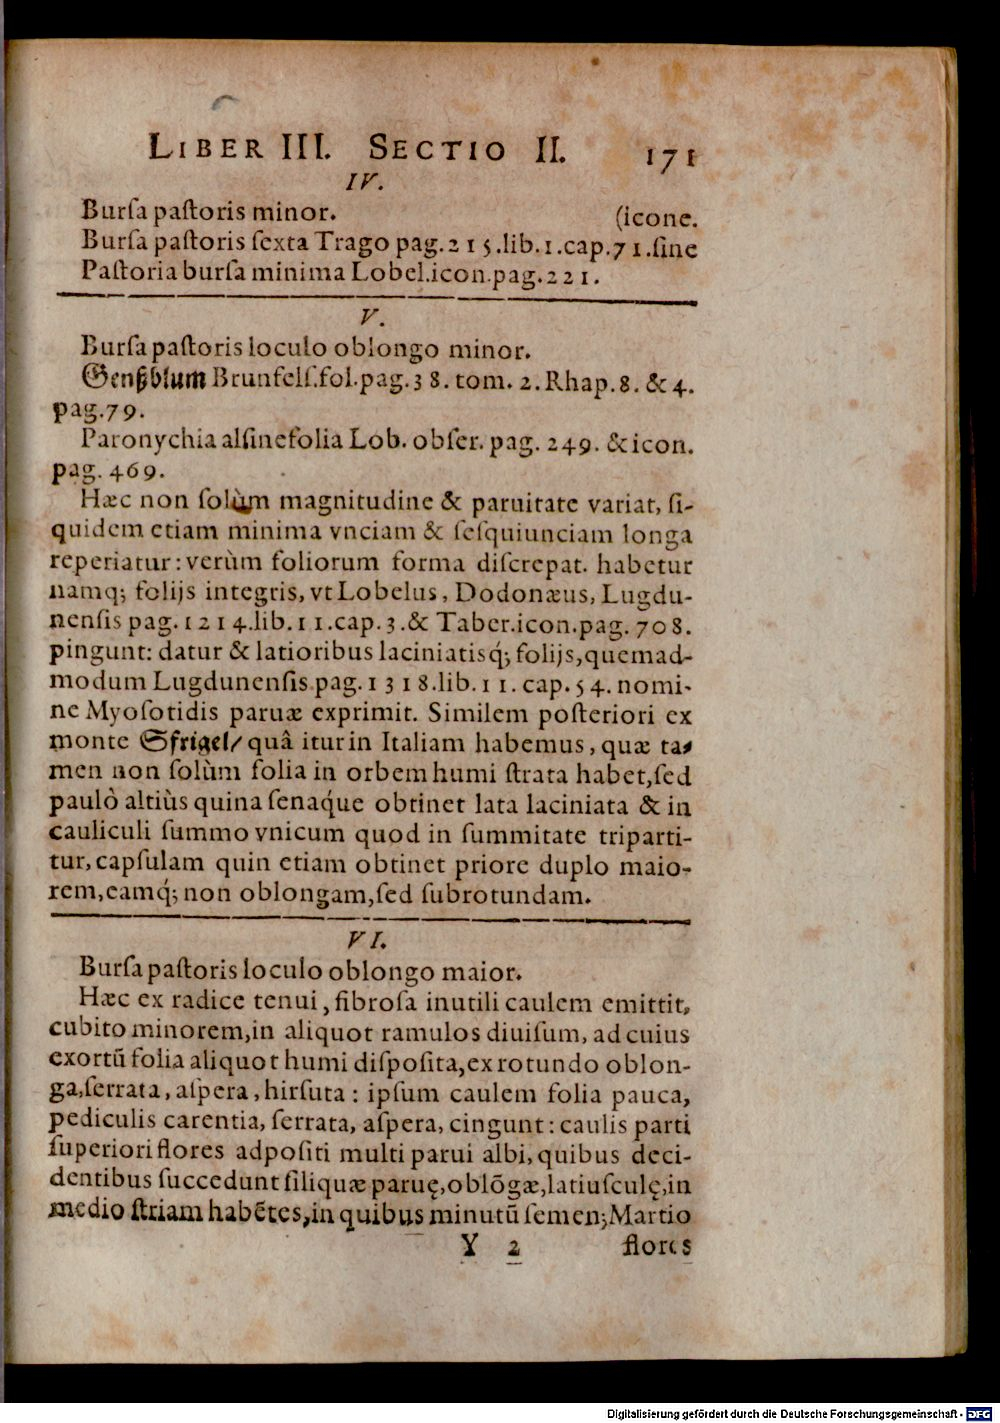 LIBER III. SECTIO II. 171
IV.
Burſa paſtoris minor. (icone.
Burſa paſtoris ſexta Trago pag.215.lib.1.cap.71.ſine
Paſtoria burſa minima Lobel.icon.pag.221.
V.
Burſa paſtoris loculo oblongo minor.
Genßblum Brunfelſ.fol.pag.38. tom. 2. Rhap.8. & 4.
pag.79.
Paronychia alſinefolia Lob. obſer. pag. 249. & icon.
pag. 469.
Hæc non ſolùm magnitudine & paruitate variat, ſi-
quidem etiam minima vnciam & ſeſquiunciam longa
reperiatur: verùm foliorum forma diſcrepat. habetur
namq́; folijs integris, vt Lobelus, Dodonæus, Lugdu-
nenſis pag.1214.lib.11.cap.3.& Taber.icon.pag.708.
pingunt: datur & latioribus laciniatisq́; folijs,quemad-
modum Lugdunenſis pag.1318.lib.11.cap.54. nomi-
ne Myoſotidis paruæ exprimit. Similem poſteriori ex
monte Sfrigel/ quâ itur in Italiam habemus, quæ ta-
men non ſolùm folia in orbem humi ſtrata habet,ſed
paulò altiùs quina ſenaq́ue obtinet lata laciniata & in
cauliculi ſummo vnicum quod in ſummitate triparti-
tur, capſulam quin etiam obtinet priore duplo maio-
rem,eamq́; non oblongam,ſed ſubrotundam.
VI.
Burſa paſtoris loculo oblongo maior.
Hæc ex radice tenui, fibroſa inutili caulem emittit,
cubito minorem,in aliquot ramulos diuiſum, ad cuius
exortū folia aliquot humi diſpoſita,ex rotundo oblon-
ga,ſerrata, aſpera, hirſuta: ipſum caulem folia pauca,
pediculis carentia, ſerrata, aſpera, cingunt: caulis parti
ſuperiori flores adpoſiti multi parui albi, quibus deci-
dentibus ſuccedunt ſiliquæ paruę,oblōgæ,latiuſculę,in
medio ſtriam habētes,in quibus minutū ſemen;Martio
Y 2 flores
Digitalisierung gefördert durch die Deutsche Forschungsgemeinschaft - DFG